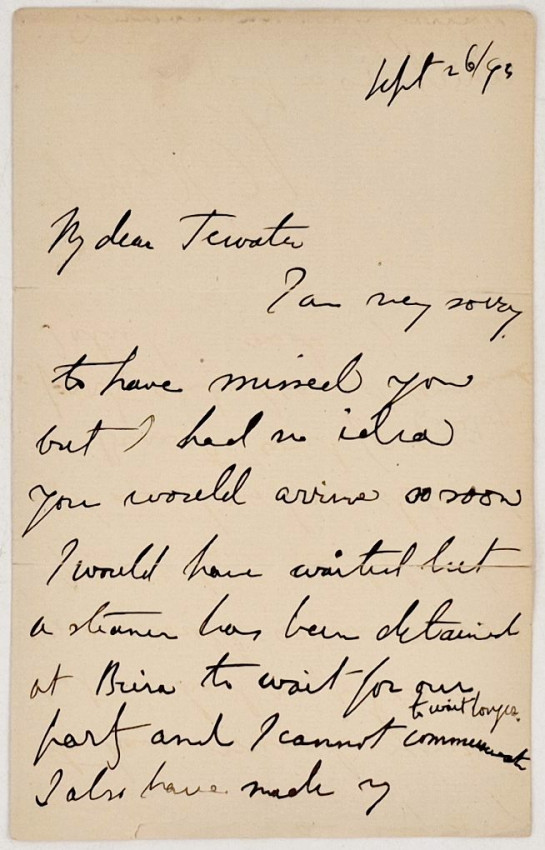 Sept 26/93
My dear Tewater
I am very sorry
to have missed you
but I had no idea
you would arrive so soon
I would have waited but
a steamer has been detained
at Beira to wait for our
to wait longer.
party and I cannot communicate
I also have made my